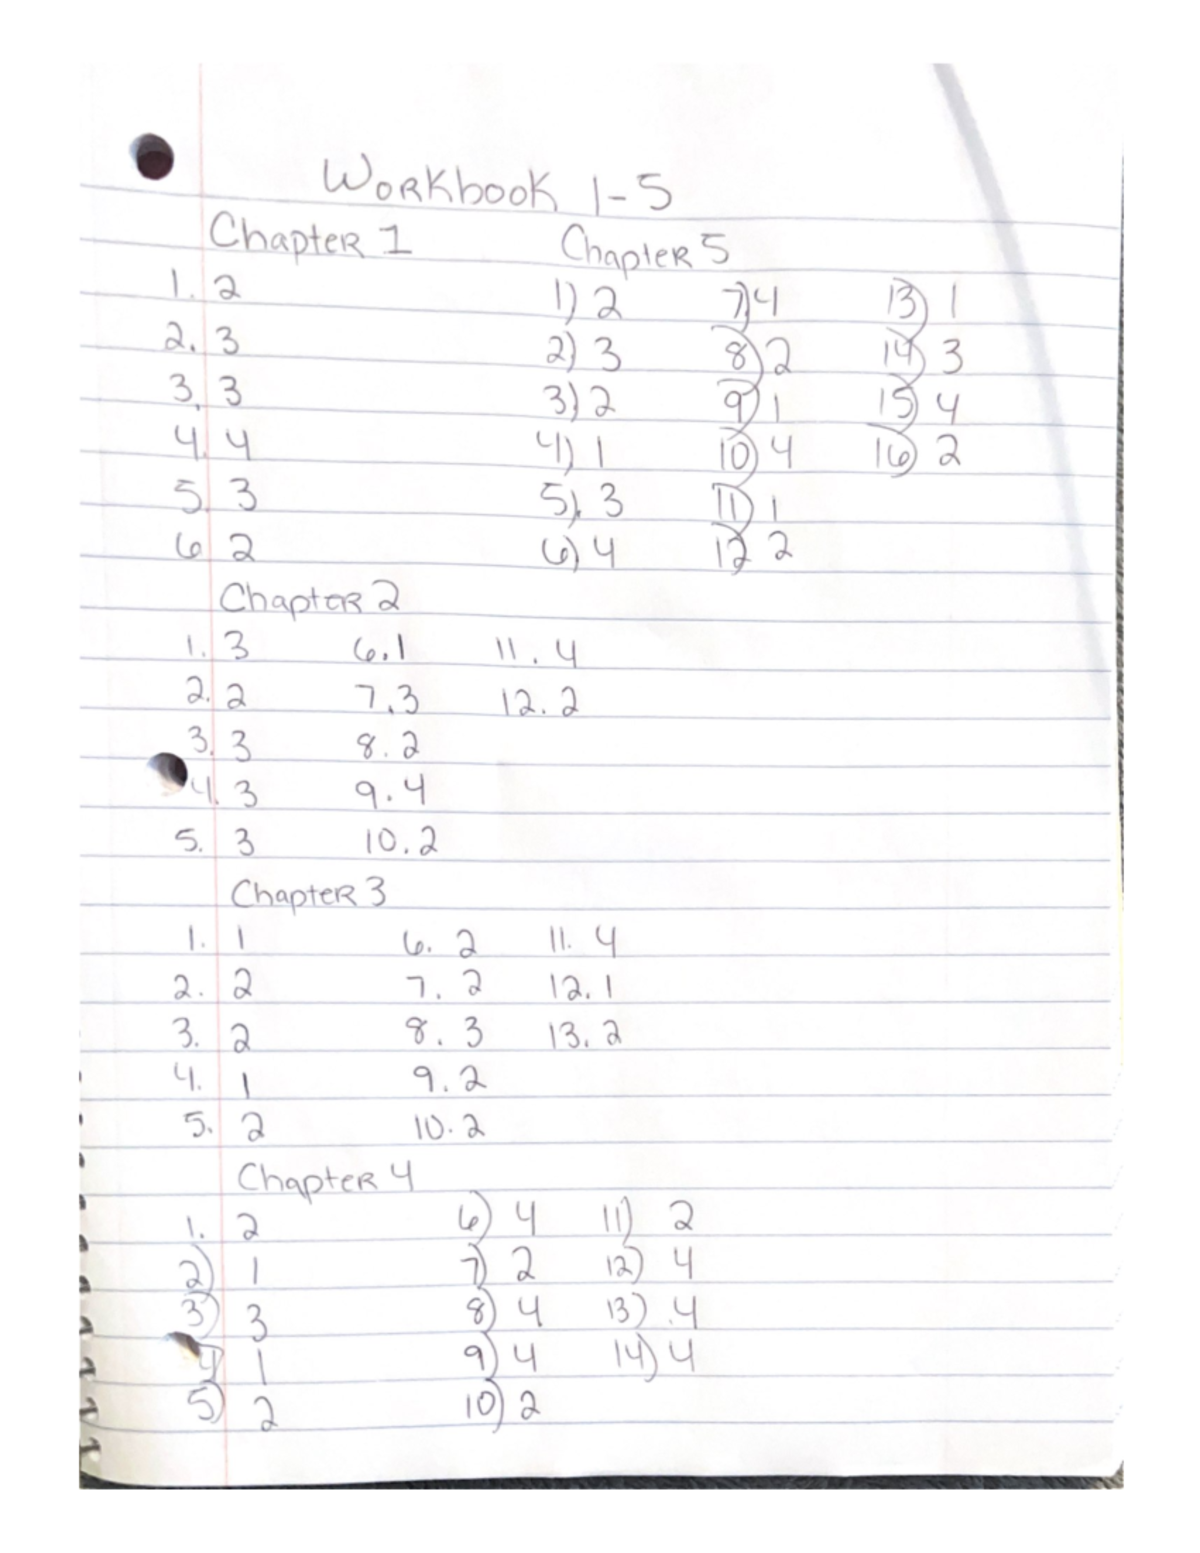 Workbook 1-5
Chapter 1 Chapter 5
1. 2 1) 2 7) 4 13) 1
2. 3 2) 3 8) 2 14) 3
3. 3 3) 2 9) 1 15) 4
4. 4 4) 1 10) 4 16) 2
5. 3 5). 3 11) 1
6 2 6) 4 12) 2
Chapter 2
1. 3 6.1 11. 4
2. 2 7.3 12. 2
3. 3 8. 2
4. 3 9. 4
5. 3 10. 2
Chapter 3
1. 1 6. 2 11. 4
2. 2 7. 2 12. 1
3. 2 8. 3 13. 2
4. 1 9. 2
5. 2 10. 2
Chapter 4
1. 2 6) 4 11) 2
2) 1 7) 2 12) 4
3) 3 8) 4 13) .4
4) 1 9) 4 14) 4
5) 2 10) 2